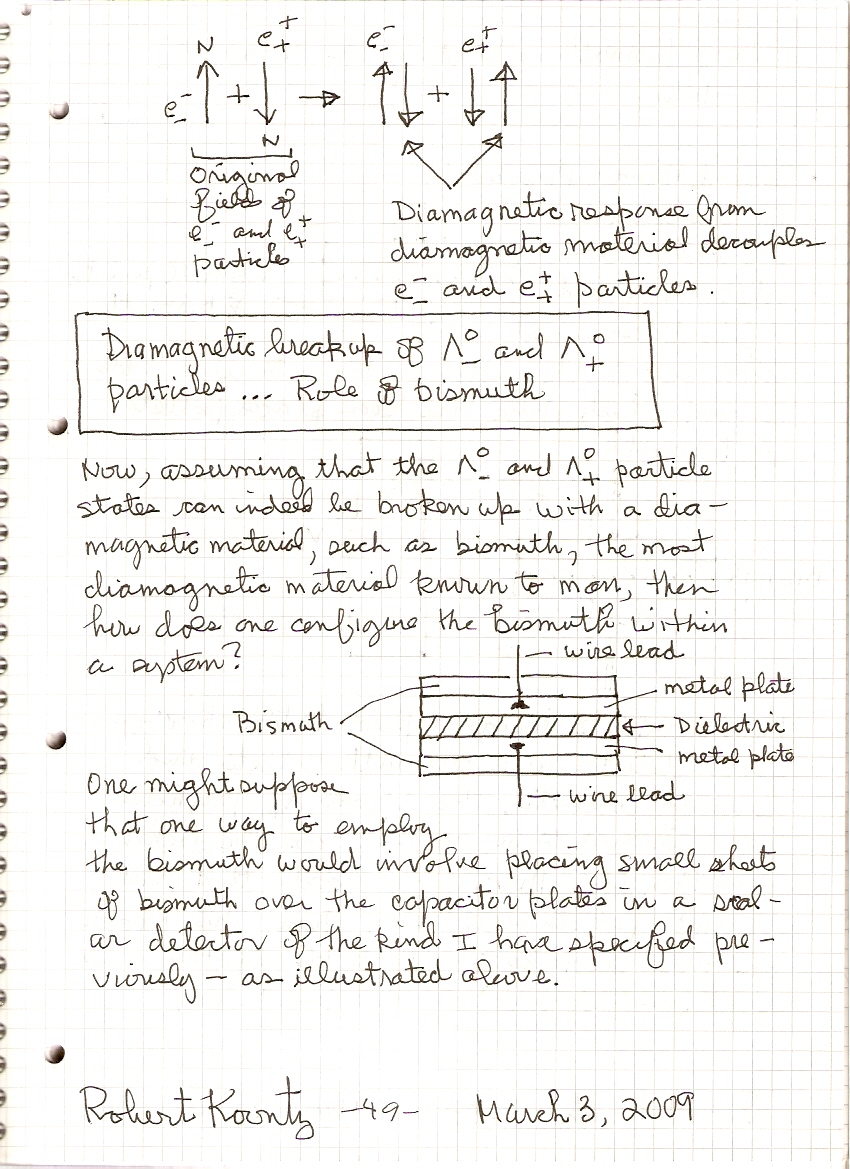 N e₊⁺ e₋⁻ e₊⁺
e₋⁻ + → +
N
Original
fields of
e₋⁻ and e₊⁺
particles
Diamagnetic response from
diamagnetic material decouples
e₋⁻ and e₊⁺ particles.
Diamagnetic breakup of Λ₋⁰ and Λ₊⁰
particles ... Role of bismuth
Now, assuming that the Λ₋⁰ and Λ₊⁰ particle
states can indeed be broken up with a dia-
magnetic material, such as bismuth, the most
diamagnetic material known to man, then
how does one configure the bismuth within
a system?
wire lead
metal plate
Bismuth
Dielectric
metal plate
wire lead
One might suppose
that one way to employ
the bismuth would involve placing small sheets
of bismuth over the capacitor plates in a scal-
ar detector of the kind I have specified pre-
viously — as illustrated above.
Robert Koontz -49- March 3, 2009